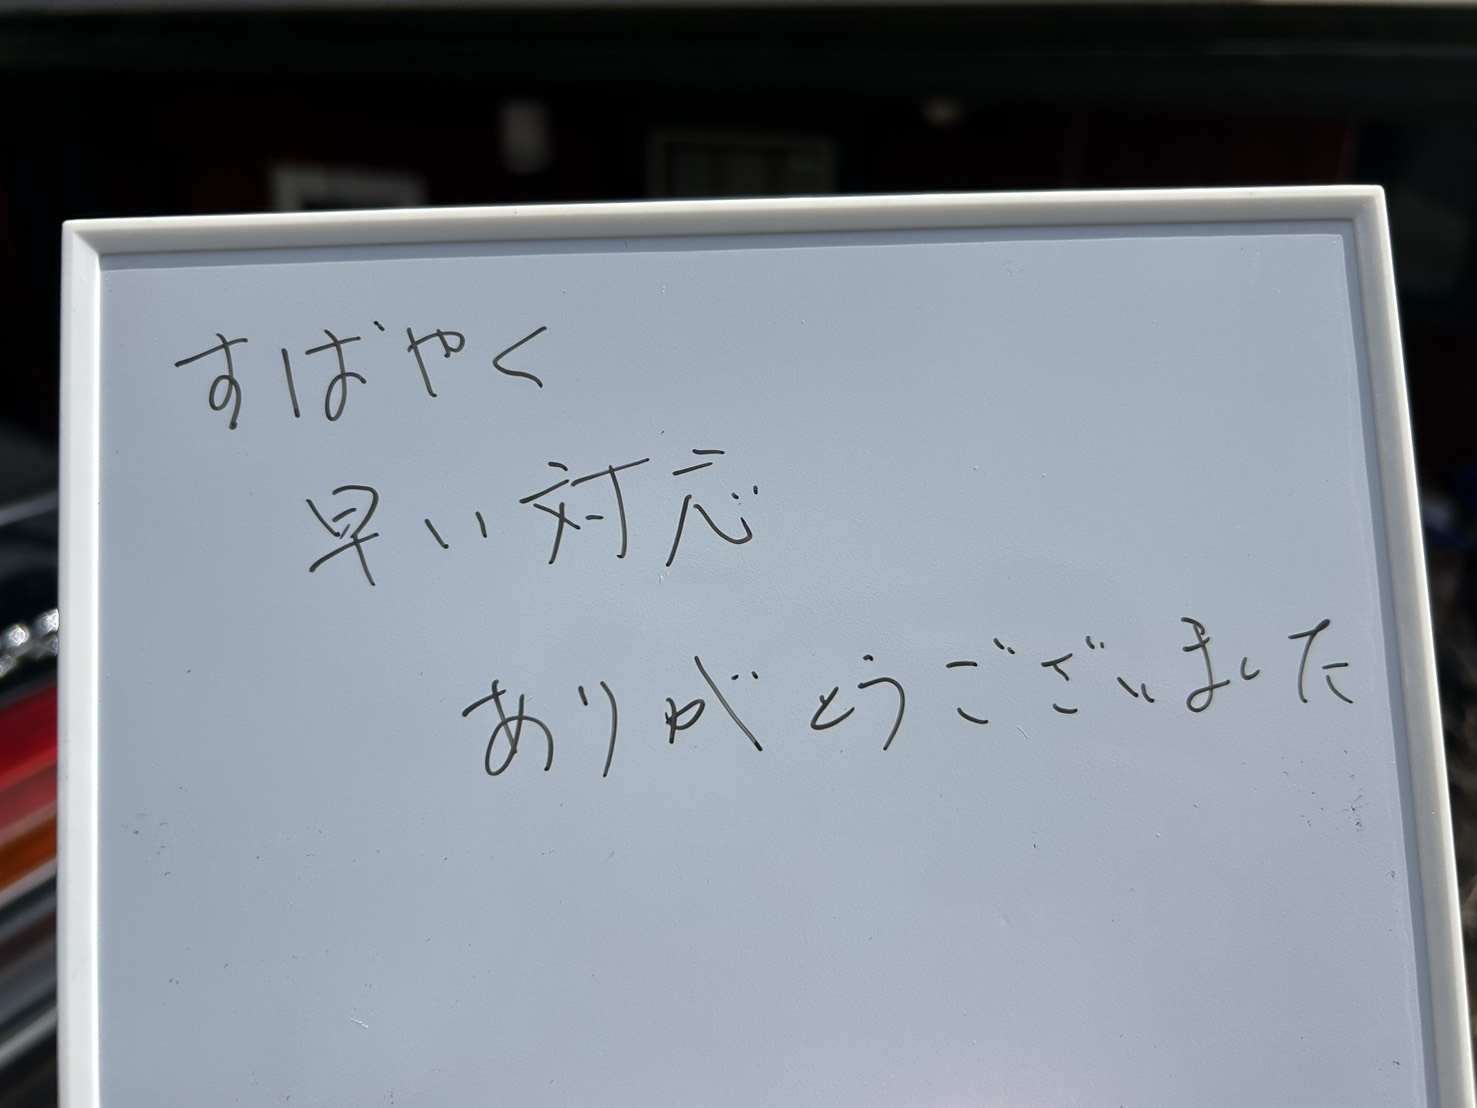 すばやく
早い対応
ありがとうございました